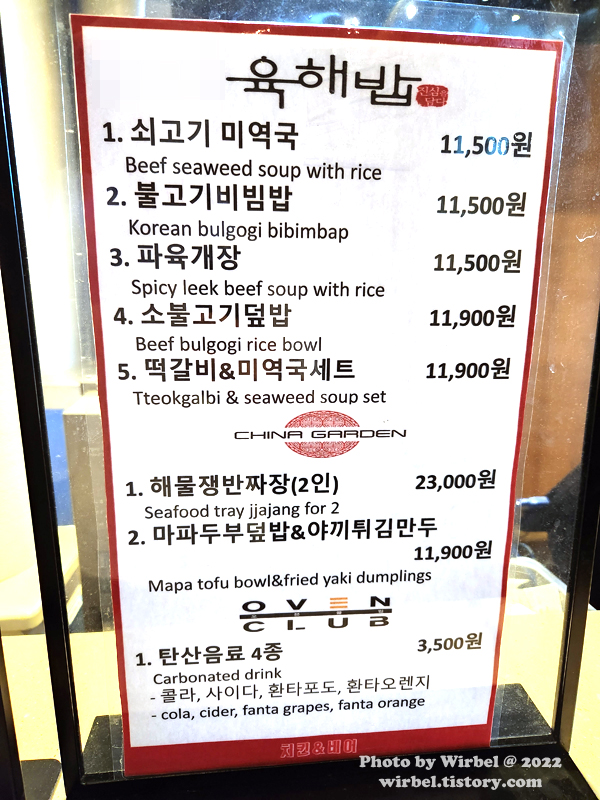 육해밥 진심을 담다
1. 쇠고기 미역국 11,500원
Beef seaweed soup with rice
2. 불고기비빔밥 11,500원
Korean bulgogi bibimbap
3. 파육개장 11,500원
Spicy leek beef soup with rice
4. 소불고기덮밥 11,900원
Beef bulgogi rice bowl
5. 떡갈비&미역국세트 11,900원
Tteokgalbi & seaweed soup set
CHINA GARDEN
1. 해물쟁반짜장(2인) 23,000원
Seafood tray jjajang for 2
2. 마파두부덮밥&야끼튀김만두
11,900원
Mapa tofu bowl&fried yaki dumplings
OVEN
CLUB
1. 탄산음료 4종 3,500원
Carbonated drink
- 콜라, 사이다, 환타포도, 환타오렌지
- cola, cider, fanta grapes, fanta orange
치킨&비어
Photo by Wirbel @ 2022
wirbel.tistory.com